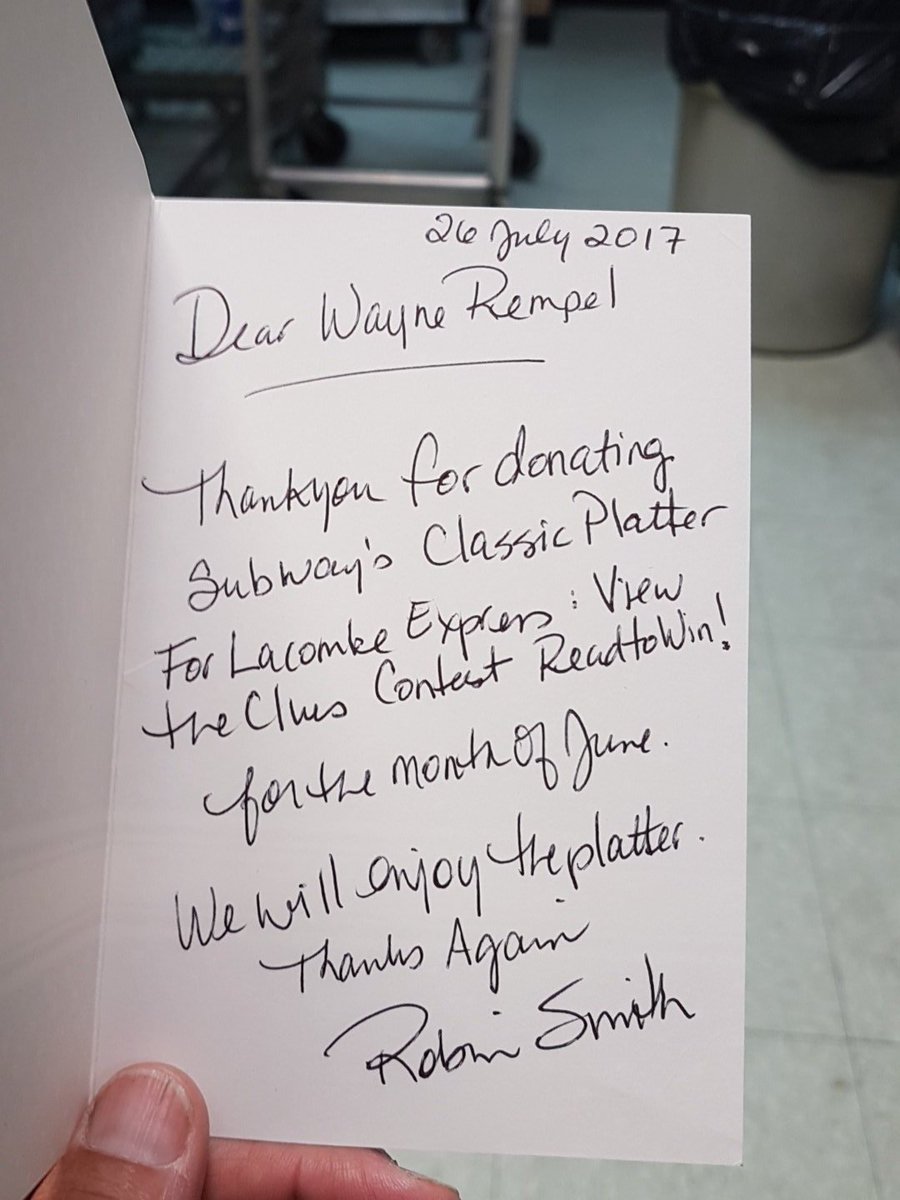 26 July 2017
Dear Wayne Rempel
Thankyou for donating
Subway's Classic Platter
For Lacombe Express: View
the Clues Contest Read to Win!
for the month of June.
We will enjoy the platter.
Thanks Again
Robin Smith